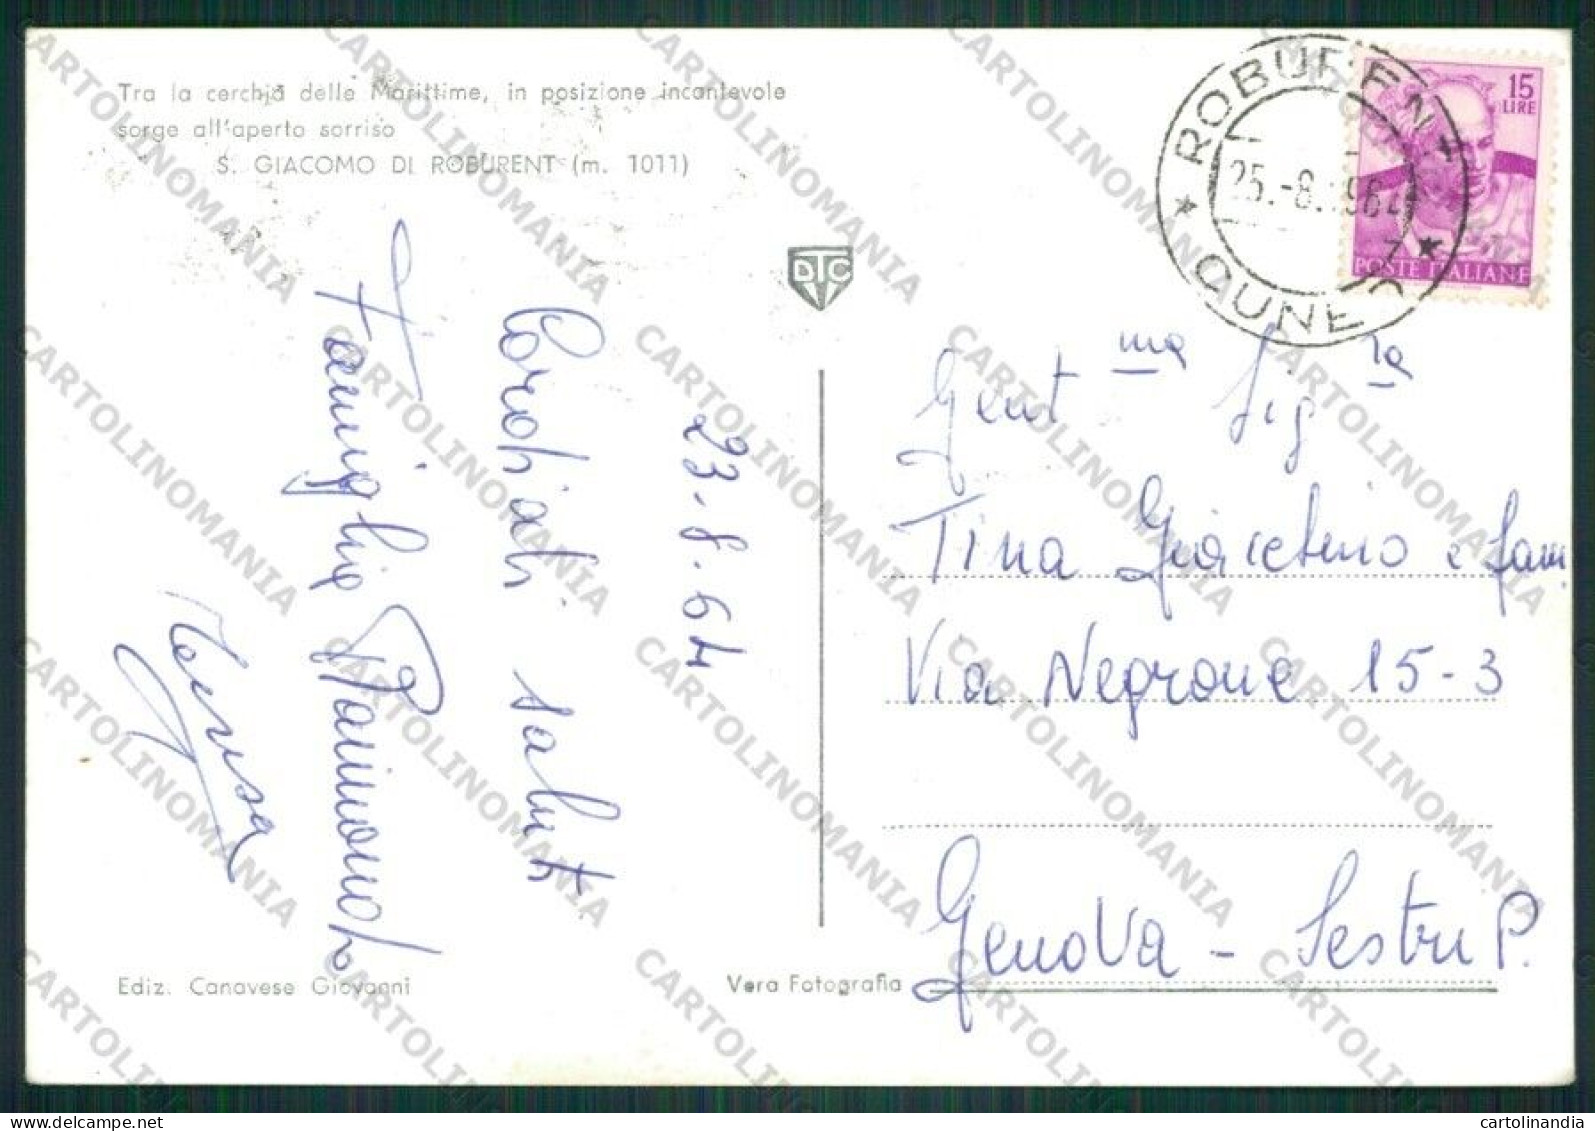 Tra la cerchia delle Marittime, in posizione incantevole
sorge all'aperto sorriso
S. GIACOMO DI ROBURENT (m. 1011)
DTC
ROBURENT
25.-8.1964
CUNEO
15
LIRE
POSTE ITALIANE
23.8.64
Cordiali saluti
Famiglia Raimondo
Gent ma Sig ra
Tina Giacchino e fam
Via Negrone 15-3
Genova - Sestri P.
Ediz. Canavese Giovanni
Vera Fotografia
CARTOLINOMANIA
cartolinandia